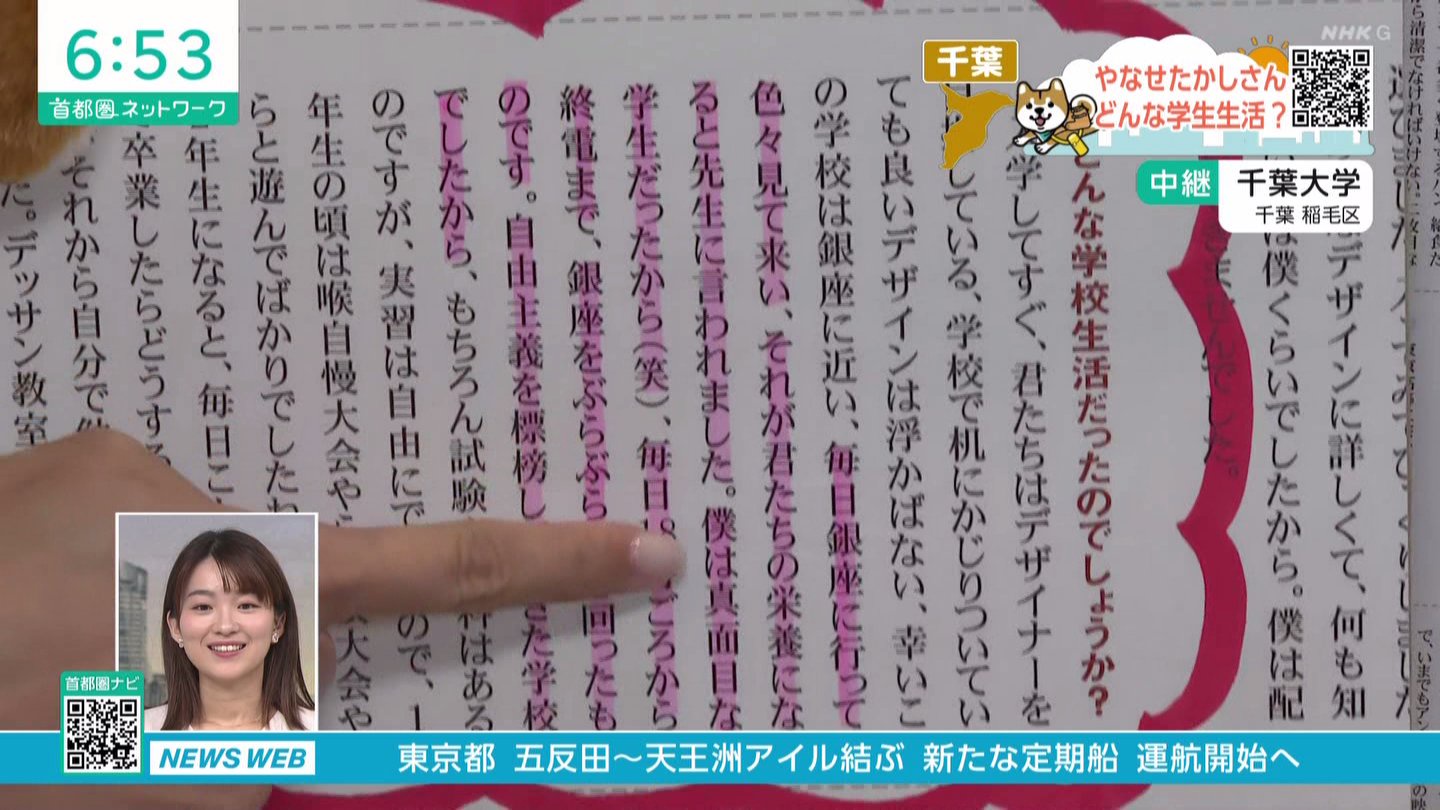 6:53
首都圏ネットワーク
NHK G
千葉
やなせたかしさん
どんな学生生活？
中継
千葉大学
千葉 稲毛区
デザインに詳しくて、何も知
は僕くらいでしたから。僕は配
ませんでした。
んな学校生活だったのでしょうか？
学してすぐ、君たちはデザイナーを
している、学校で机にかじりついてい
ても良いデザインは浮かばない、幸いこ
の学校は銀座に近い、毎日銀座に行って
色々見て来い、それが君たちの栄養にな
ると先生に言われました。僕は真面目な
学生だったから（笑）、毎日18 ごろから
終電まで、銀座をぶらぶら 回ったも
のです。自由主義を標榜し た学校
でしたから、もちろん試験 はある
のですが、実習は自由にで ので、1
年生の頃は喉自慢大会や 大会や
らと遊んでばかりでしたね
年生になると、毎日こ
卒業したらどうする
それから自分で
た。デッサン教室
首都圏ナビ
NEWS WEB
東京都 五反田～天王洲アイル結ぶ 新たな定期船 運航開始へ